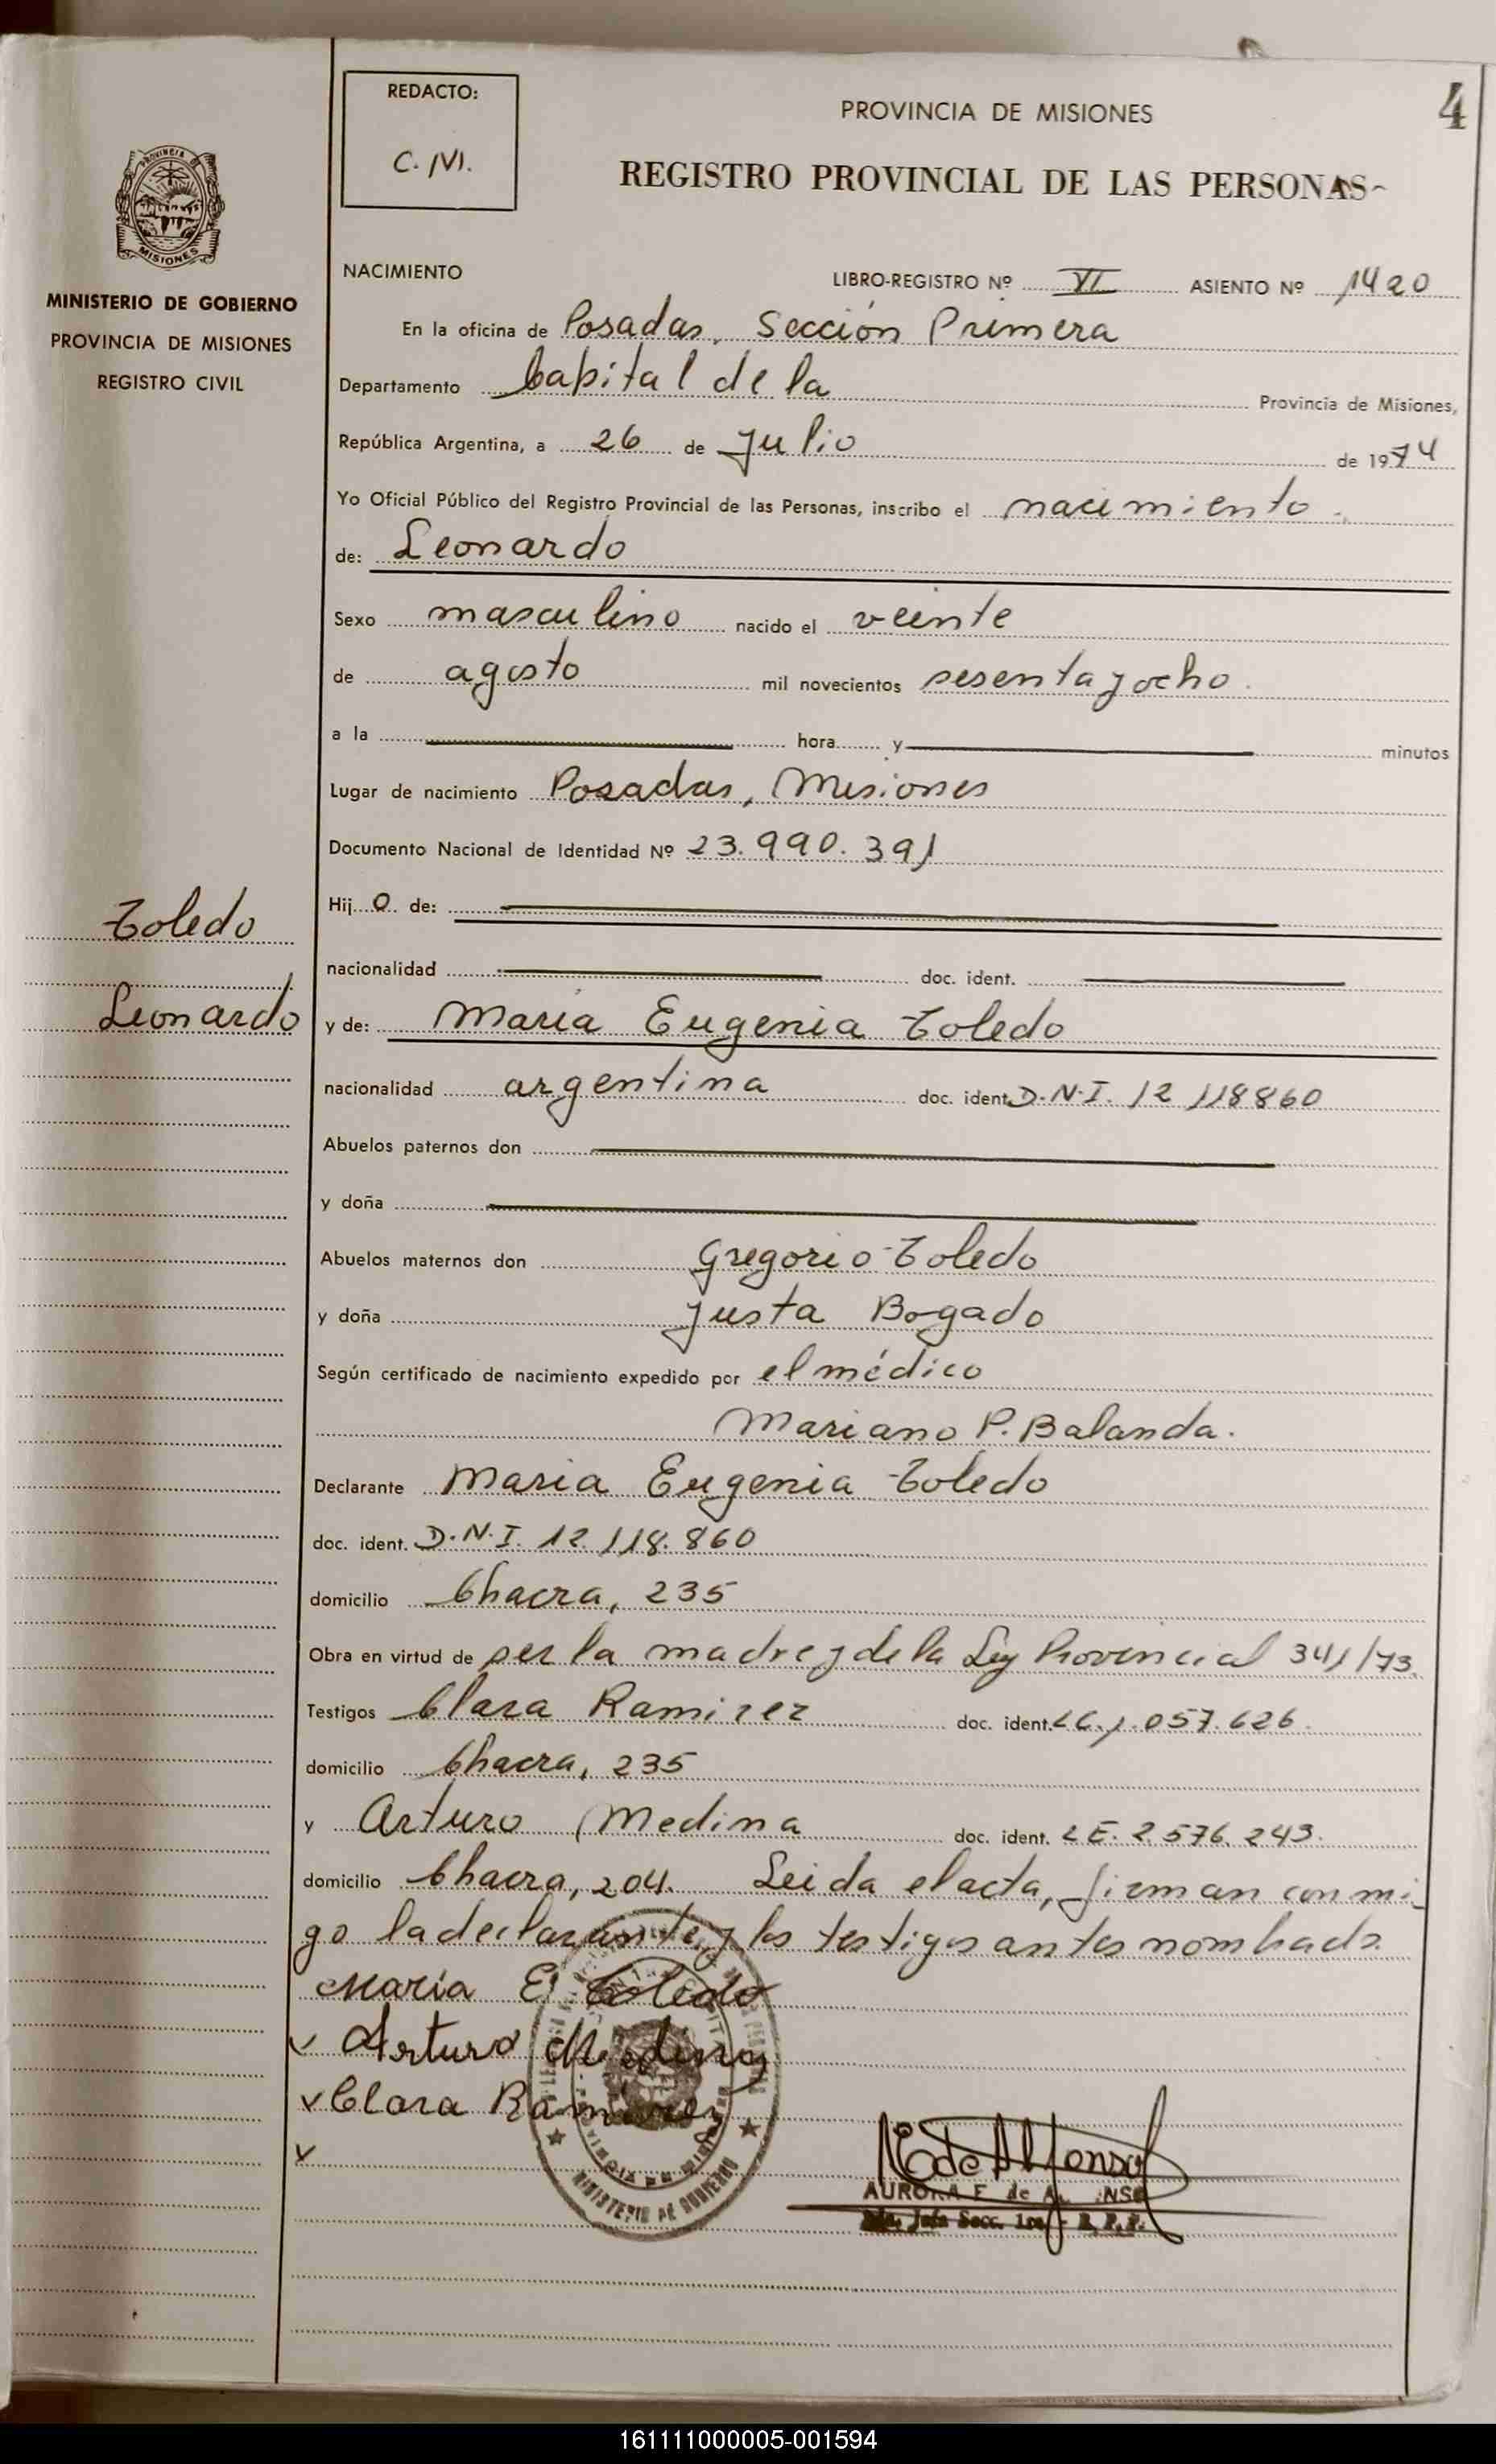 REDACTO:
C. M.
4
PROVINCIA DE MISIONES
REGISTRO PROVINCIAL DE LAS PERSONAS
PROVINCIA
MISIONES
MINISTERIO DE GOBIERNO
PROVINCIA DE MISIONES
REGISTRO CIVIL
NACIMIENTO LIBRO-REGISTRO Nº VI ASIENTO Nº 1420
En la oficina de Posadas, Sección Primera
Departamento Capital de la Provincia de Misiones,
República Argentina, a 26 de Julio de 1974
Yo Oficial Público del Registro Provincial de las Personas, inscribo el nacimiento.
de: Leonardo
Sexo masculino nacido el veinte
de agosto mil novecientos sesenta y ocho.
a la hora y minutos
Lugar de nacimiento Posadas, Misiones
Documento Nacional de Identidad Nº 23.990.391
Toledo
Leonardo
Hij o de:
nacionalidad doc. ident.
y de: Maria Eugenia Toledo
nacionalidad argentina doc. ident. D.N.I. 12 118860
Abuelos paternos don
y doña
Abuelos maternos don Gregorio Toledo
y doña Justa Bogado
Según certificado de nacimiento expedido por el médico
Mariano P. Balanda.
Declarante Maria Eugenia Toledo
doc. ident. D.N.I. 12.118.860
domicilio Chacra, 235
Obra en virtud de ser la madre y de la Ley Provincial 341/73.
Testigos Clara Ramirez doc. ident. LC. 1.057.626.
domicilio Chacra, 235
y Arturo Medina doc. ident. LE. 2.576.243.
domicilio Chacra, 204. Leida el acta, firman conmi
go la declarante y los testigos antes nombrado.
Maria E. Toledo
Arturo Medina
Clara Ramirez
MINISTERIO DE GOBIERNO
AURORA E. de
Secc. 1ra. - R. P. P.
161111000005-001594